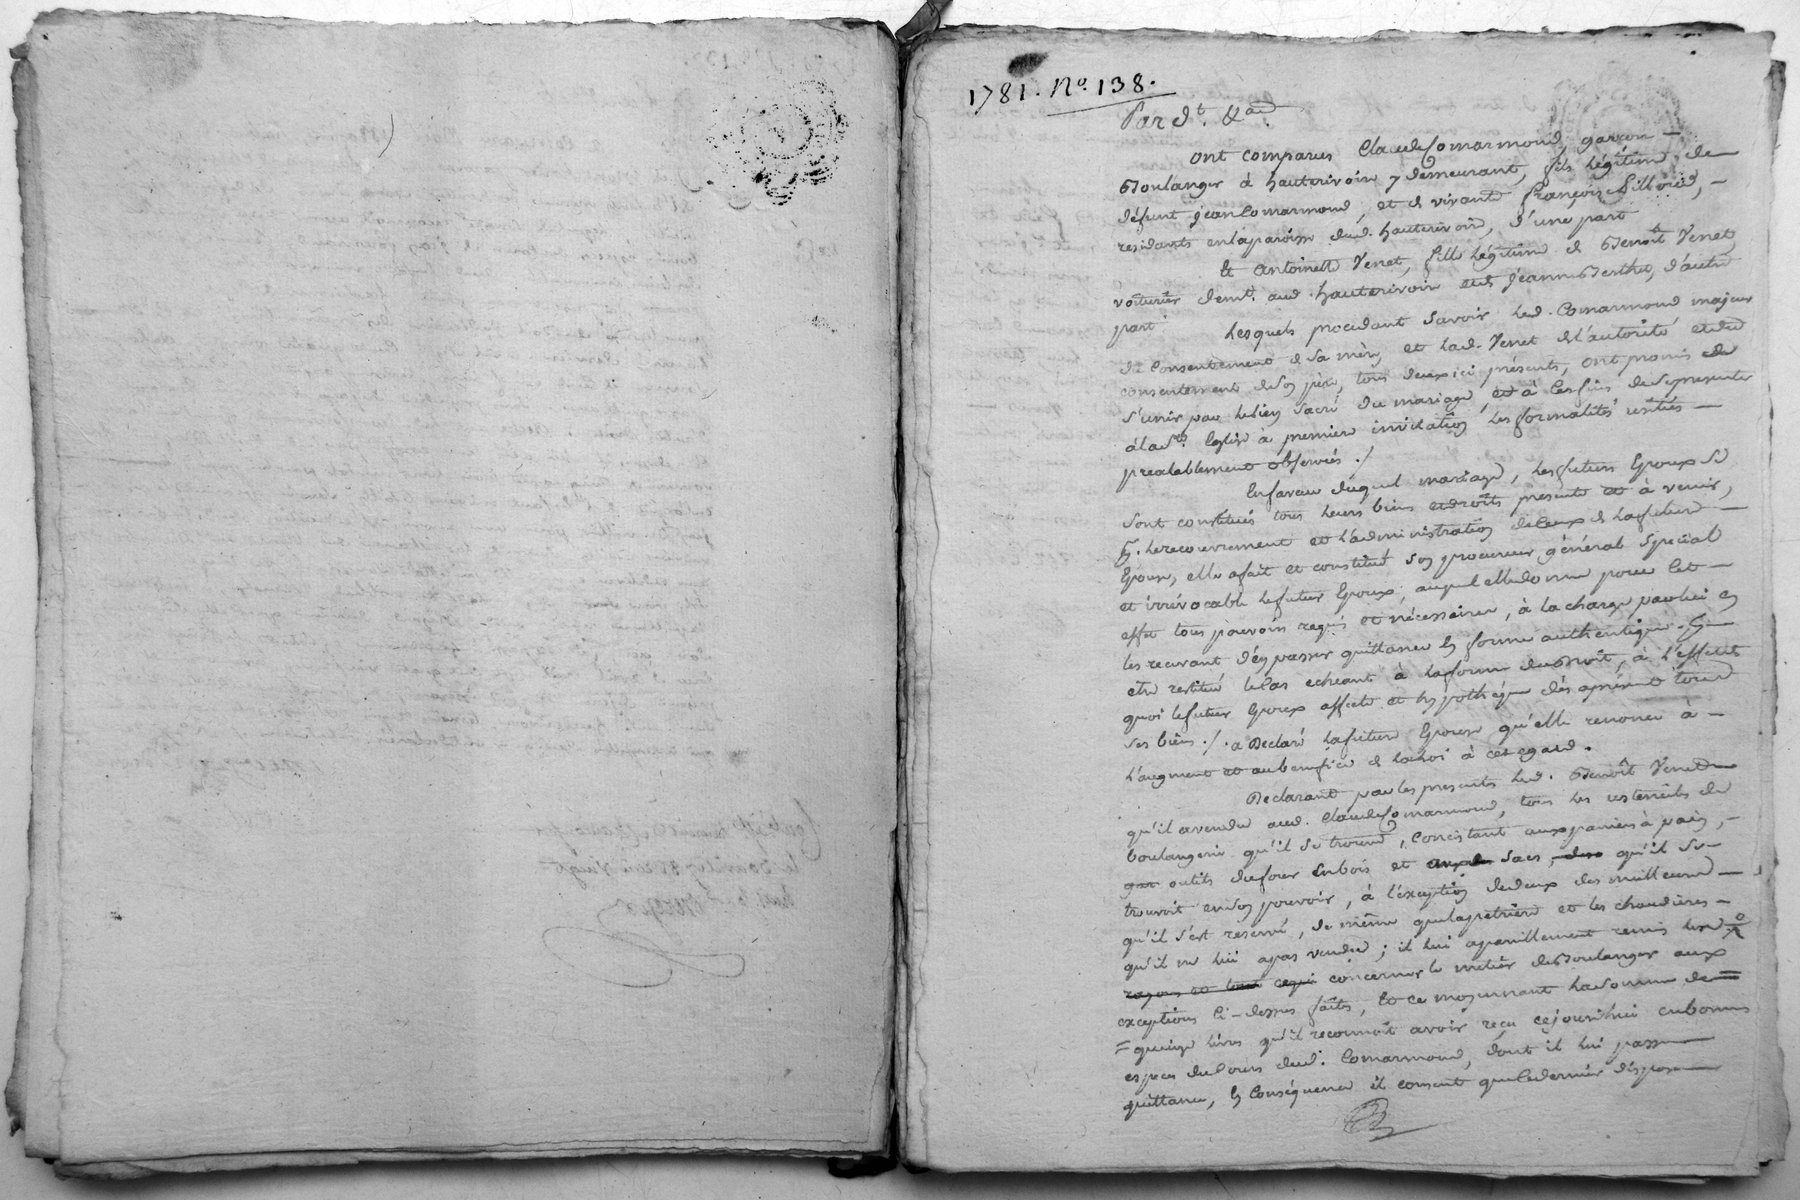 1781. No. 138.
Par dt. &a
ont comparus Claude Comarmond, garçon
Boulanger à hauterivoire y demeurant, fils légitime de
défunt jean Comarmond, et de vivante françoise
residants en la paroisse dud. hauterivoire, d'une part
Et antoinette Venet, fille légitime de Benoit Venet,
voiturier demt. aud. hauterivoire et de jeanne Berthet, d'autre
part. Lesquels procédant savoir led. Comarmond majeur
du Consentement de sa mère, et lad. Venet de l'autorité et du
consentement de son père, tous deux ici présents, ont promis de
s'unir par le lien sacré du mariage, et à ces fins de se présenter
à la Ste. Eglise à première invitation les formalités usitées
préalablement observées ./
En faveur duquel mariage, les futurs Epoux se
sont constitués tous leurs biens et droits présents et à venir,
Pr. le recouvrement et l'administration de ceux de la future
Epouse, elle a fait et constitué son procureur général spécial
et irrévocable le futur Epoux, auquel elle donne pour cet
effet tous pouvoirs requis et nécessaires, à la charge par lui en
les recevant d'en passer quittance en forme authentique. Pr.
être restitué le cas echeant à la forme du droit, à l'effet de
quoi le futur Epoux affecte et hypothèque dès à présent tous
ses biens ./. a Déclaré la future Epouse qu'elle renonce à
l'augment et au benefice de la loi à cet egard.
Declarant par les presentes led. Benoît Venet
qu'il a vendu aud. Claude Comarmond, tous les ustensiles de
boulangerie qu'il se trouve, Consistant aux paniers à pain,
outils du four en bois et sacs, qu'il se
trouvoit en son pouvoir, à l'exception de deux des meilleurs
qu'il s'est reservé, de même que la petrière et les chaudières
qu'il ne lui a pas vendu; il lui a pareillement remis les
rayons et tout ce qui concerne le metier de Boulanger aux
exceptions Ci-dessus faites, Et ce moyennant la somme de
=quinze livres qu'il reconnoit avoir reçu cejourd'hui en bonnes
especes du Cours dud. Comarmond, dont il lui passe
quittance, en Conséquence il consent que ce dernier dispose